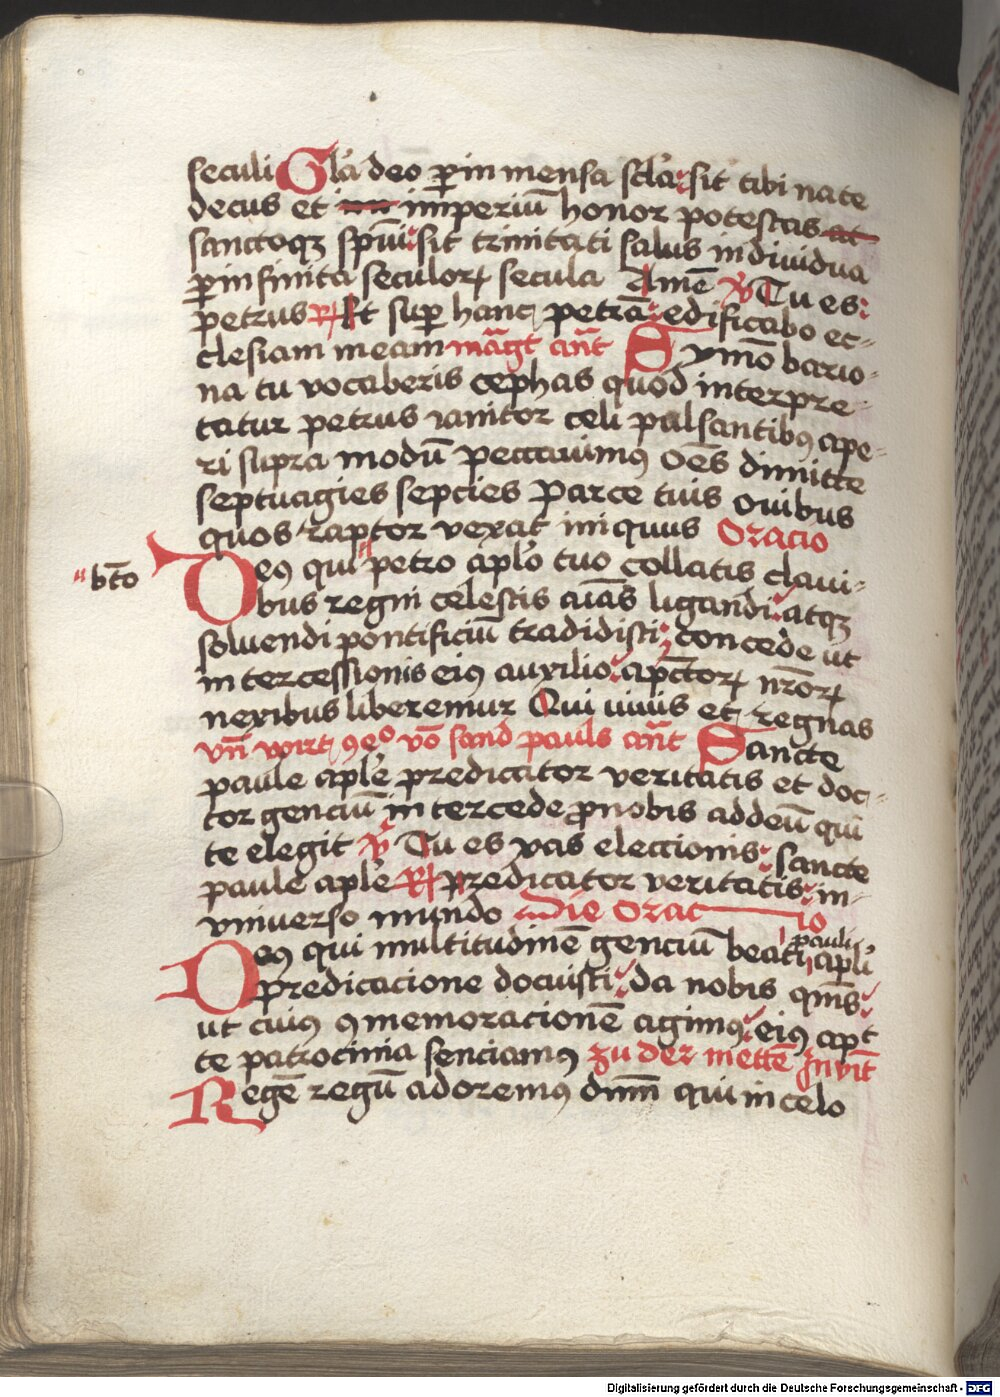 seculi Gl'a deo ꝑ inmensa scl'a sit tibi nate
decus et imperiū honor potestas
sanctoqꝫ spūi sit trinitati salus individua
ꝑ infinita seculoꝝ secula Amē ℣ Tu es
petrus ℟ Et suꝑ hanc petrā edificabo ec-
clesiam meam māgt an̄t Symō bario-
na tu vocaberis cephas quod interpre-
tatur petrus ianitor celi pulsantibꝰ ape-
ri supra modū peccauimꝰ oēs dimitte
septuagies sepcies Parce tuis ouibus
quos raptor vexat iniquus Oracio
Deꝰ qui petro apl'o tuo collatis claui-
bt̄o
bus regni celestis aīas ligandi atqꝫ
soluendi pontificiū tradidisti concede ut
intercessionis eiꝰ auxilio apc̄toꝝ nr̄oꝝ
nexibus liberemur Qui uiuis et regnas
vn̄ wirt ꝯeᵒ vō sand pauls an̄t Sancte
paule apl'e predicator veritatis et doc-
tor genciū intercede ꝓ nobis ad deū qui
te elegit ℣ Tu es vas eleccionis sancte
paule apl'e ℟ predicator veritatis in
vniuerso mundo Die Oracio
Deꝰ qui multitudinē genciū beati pauli apl'i
predicacione docuisti da nobis qm̄s
ut cuiꝰ ꝯmemoracionē agimꝰ eiꝰ apt
te patrocinia senciamꝰ zu der mettē Jnvit̄
Regē regū adoremꝰ dnm̄ qui in celo
Digitalisierung gefördert durch die Deutsche Forschungsgemeinschaft - DFG